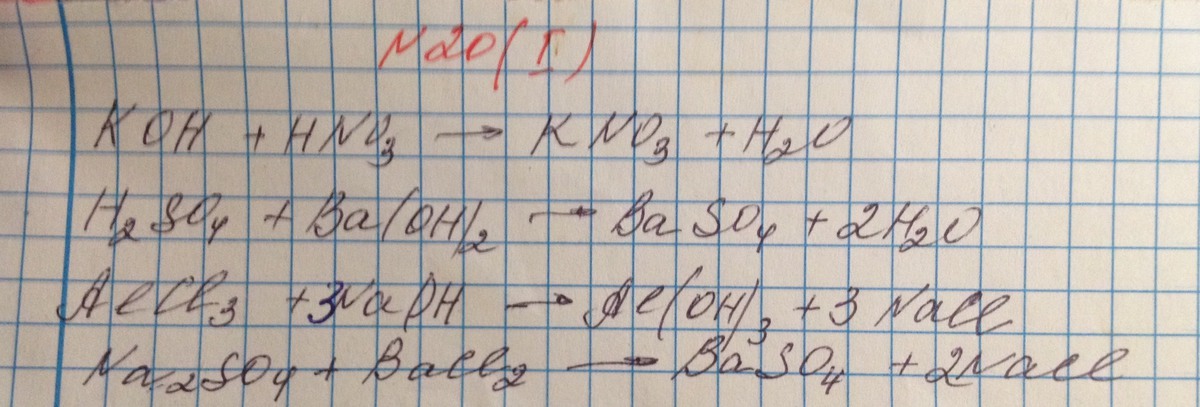 N20(I)
KOH + HNO₃ → KNO₃ + H₂O
H₂SO₄ + Ba(OH)₂ → BaSO₄ + 2H₂O
AlCl₃ + 3NaOH → Al(OH)₃ + 3 NaCl
Na₂SO₄ + BaCl₂ → BaSO₄ + 2NaCl